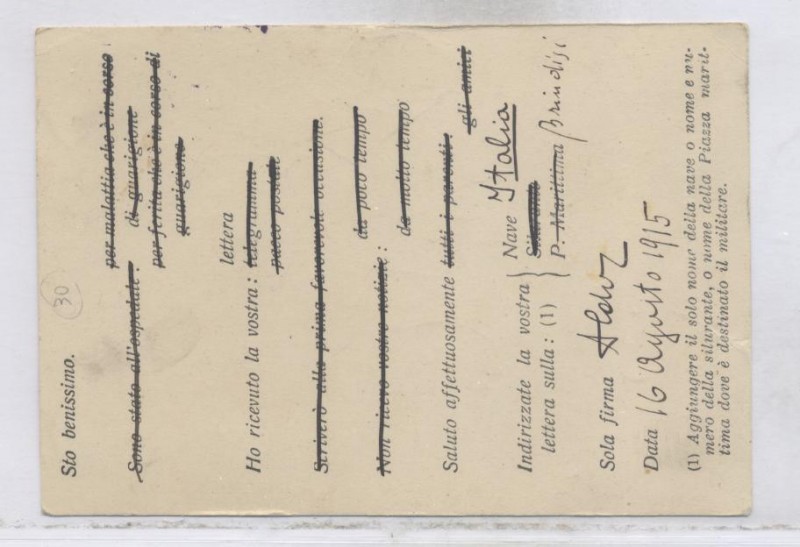 Sto benissimo.
Sono stato all'ospedale:
per malattia che è in corso
di guarigione
per ferita che è in corso di
guarigione
lettera
Ho ricevuto la vostra: telegramma
pacco postale
Scriverò alla prima favorevole occasione.
Non ricevo vostre notizie:
da poco tempo
da molto tempo
Saluto affettuosamente tutti i parenti.
gli amici
Indirizzate la vostra
lettera sulla: (1)
Nave Italia
P. Marittima Brindisi
Sola firma
Data 16 Agosto 1915
(1) Aggiungere il solo nome della nave o nome e nu-
mero della silurante, o nome della Piazza marit-
tima dove è destinato il militare.
30